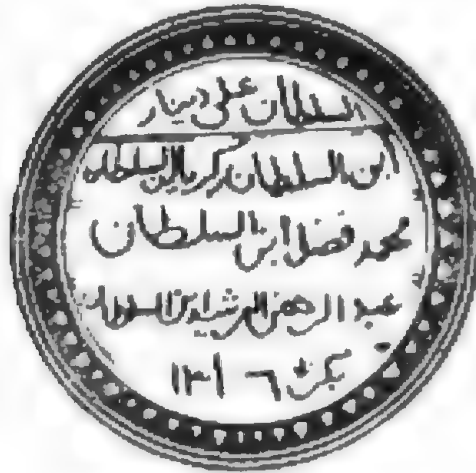 السلطان علي دينار
ابن السلطان زكريا ابن السلطان
محمد فضل ابن السلطان
عبد الرحمن الرشيد بن السلطان
بكر ١٣١٦